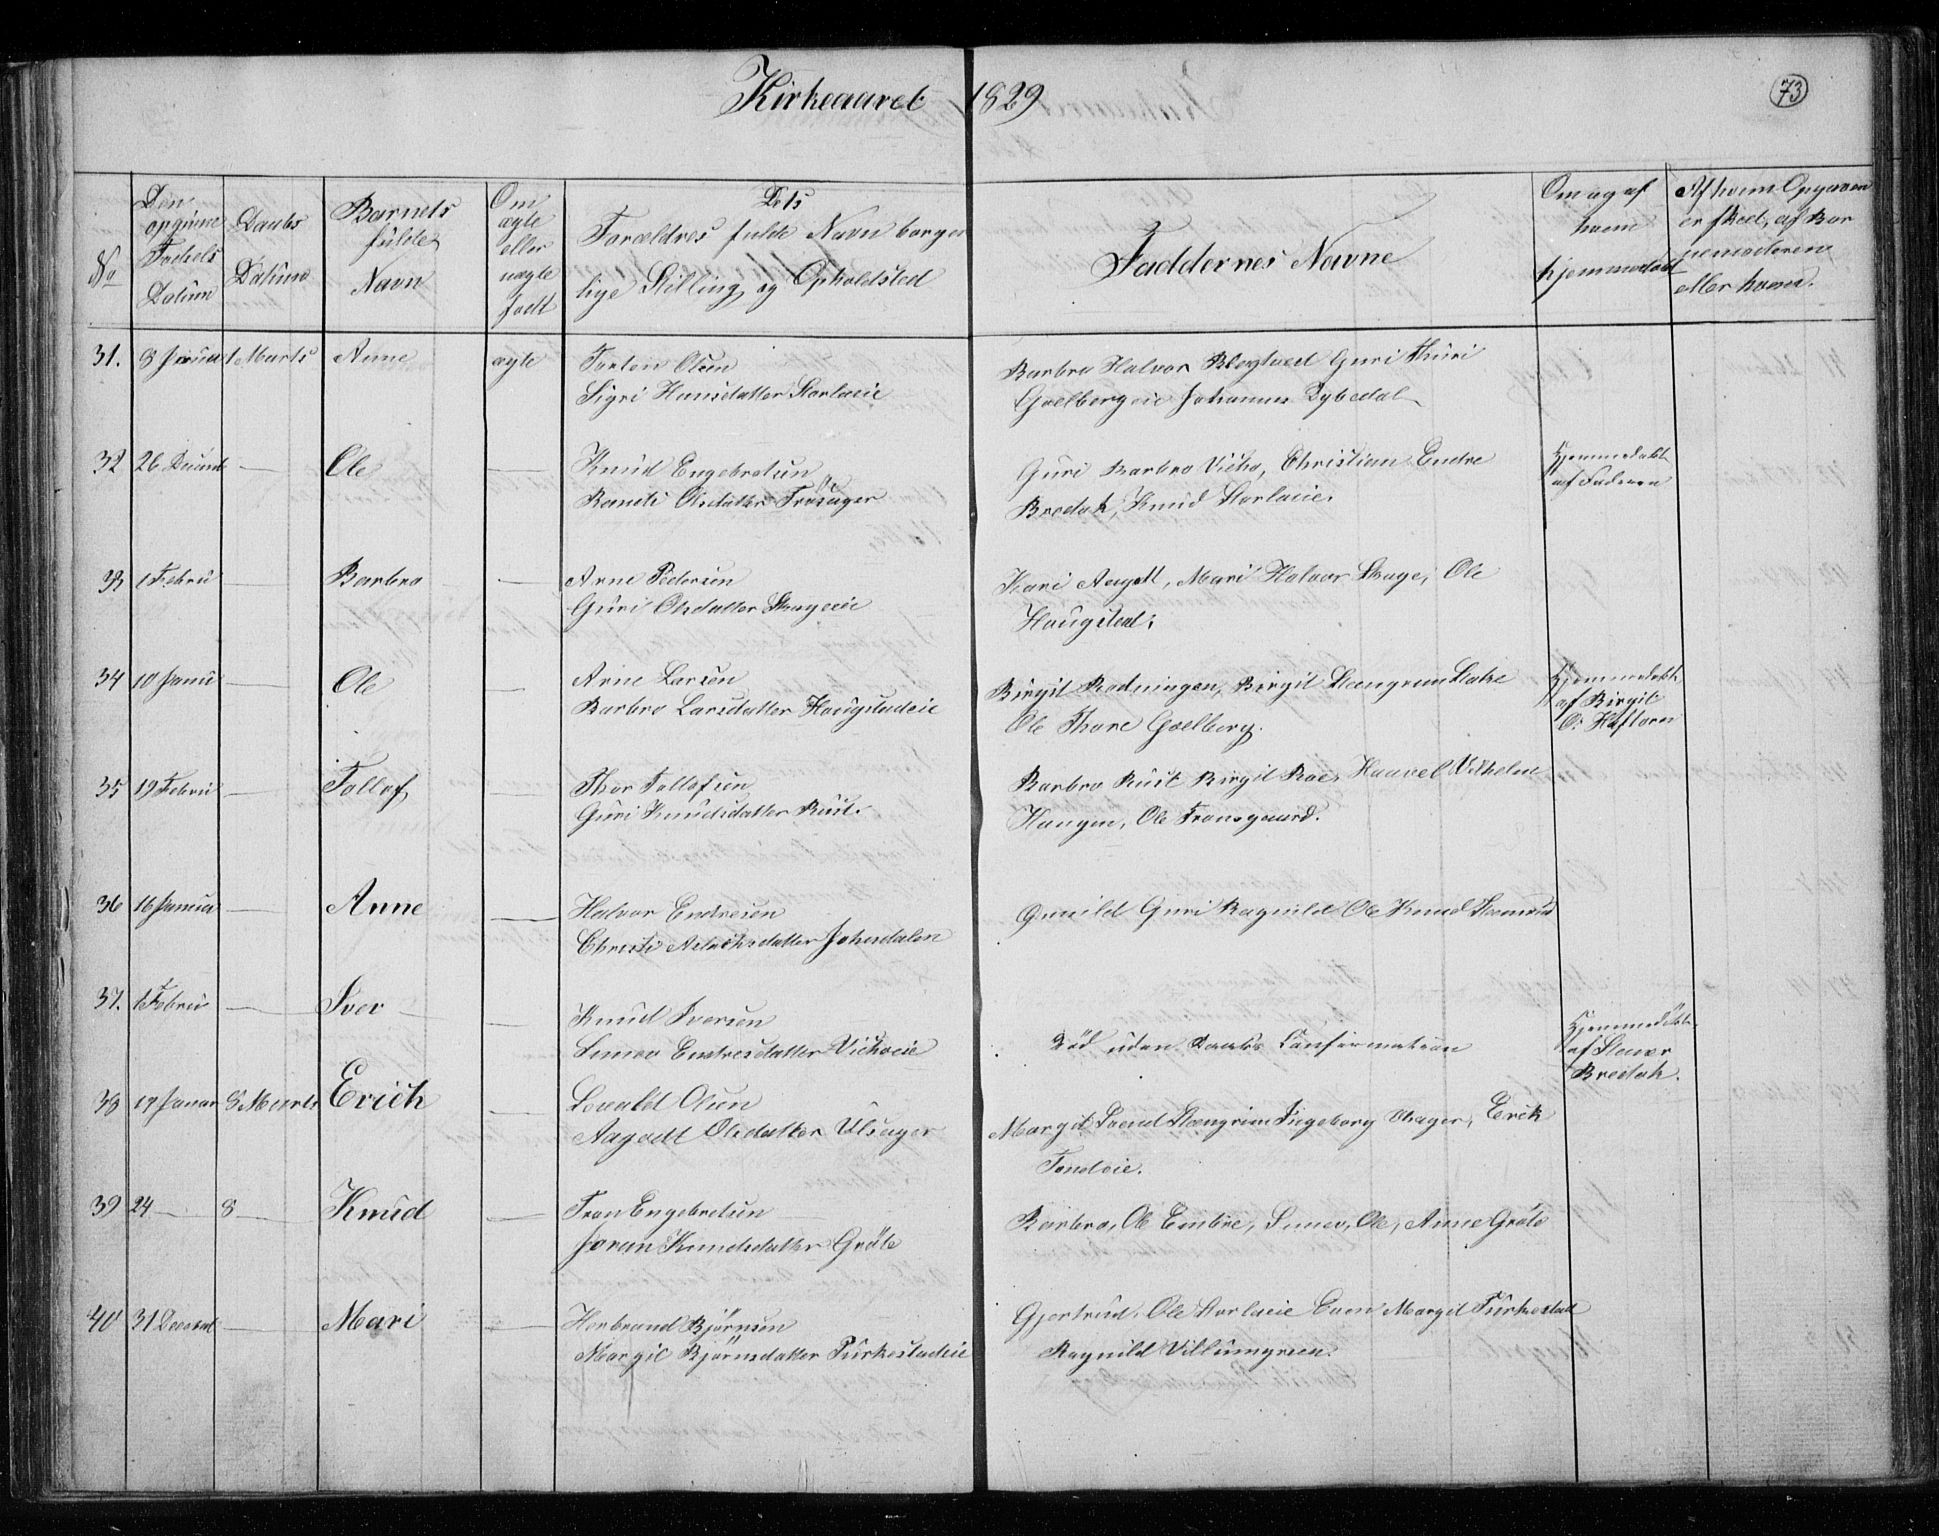 Kirkeaaret 1829
73
No
Den
opgivne
Fødsels
Datum
Daabs
Datum
Barnets
fulde
Navn
Om
ægte
eller
uægte
født
Dets
Forældres fulde Navn borger
lige Stilling og Opholdsted
Faddernes Navne
Om og af
hvem
hjemmedøbt
Af hvem Opgaven
er skeet, af Bar
nemoderen
eller hvem.
31. 8 Januar 1 Marts Anne ægte Torsten Olsen
Sigri Hansdatter Storlaeie
Barbro Halvor Guri Thuri
Golbergeie Johannes Dybedal
32 26 Decemb — Ole — Knud Engebretsen
Randi Olsdatter
Guri Barbro Vicho, Christian Endre
Bredah, Knud Storlaeie.
Hjemmedøbt
af Faderen
33 1 Febru — Barbro — Arne Pedersen
Guri Olsdatter Skageeie
Kari Aagot, Mari Halvor Skage, Ole
Haugstad.
34 10 Janu — Ole — Arne Larsen
Barbro Larsdatter Haugstadeie
Birgit Rodningen, Birgit Stengrim
Ole Thore Golberg.
Hjemmedøbt
af Birgit
O. Haftorn
35 19 Febru — Tollof — Thor Tollofsen
Guri Knudsdatter Rust.
Barbro Rust Birgit Roe, Haavel Vilhelm
Haugen, Ole Transgaard.
36 16 Janua — Anne — Halvor Endresen
Christi Aslachsdatter Johsdalen
Gunild Guri Ragnild Ole Knud
37. 6 Febru — Iver — Knud Iversen
Sunev Endresdatter Vichoeie
Død uden Daabs Confirmation
Hjemmedøbt
af Stener
Bredah.
38 19 Januar 8 Marts Erich — Olsen
Aagodt Olsdatter Ulsager
Margit Svend Stengrim Ingeborg Ulsager, Erik
39 24 — 8 — Knud — Tron Engebretsen
Joran Knudsdatter Gråte
Barbro, Ole Embre, Sunev, Ole, Anne Gråte
40 31 Decemb — Mari — Herbrand Bjørnsen
Margit Bjørnsdatter Purkestadeie
Gjertrud, Ole Storlaeie Even Margit Purkestad
Ragnild Villumgreen.